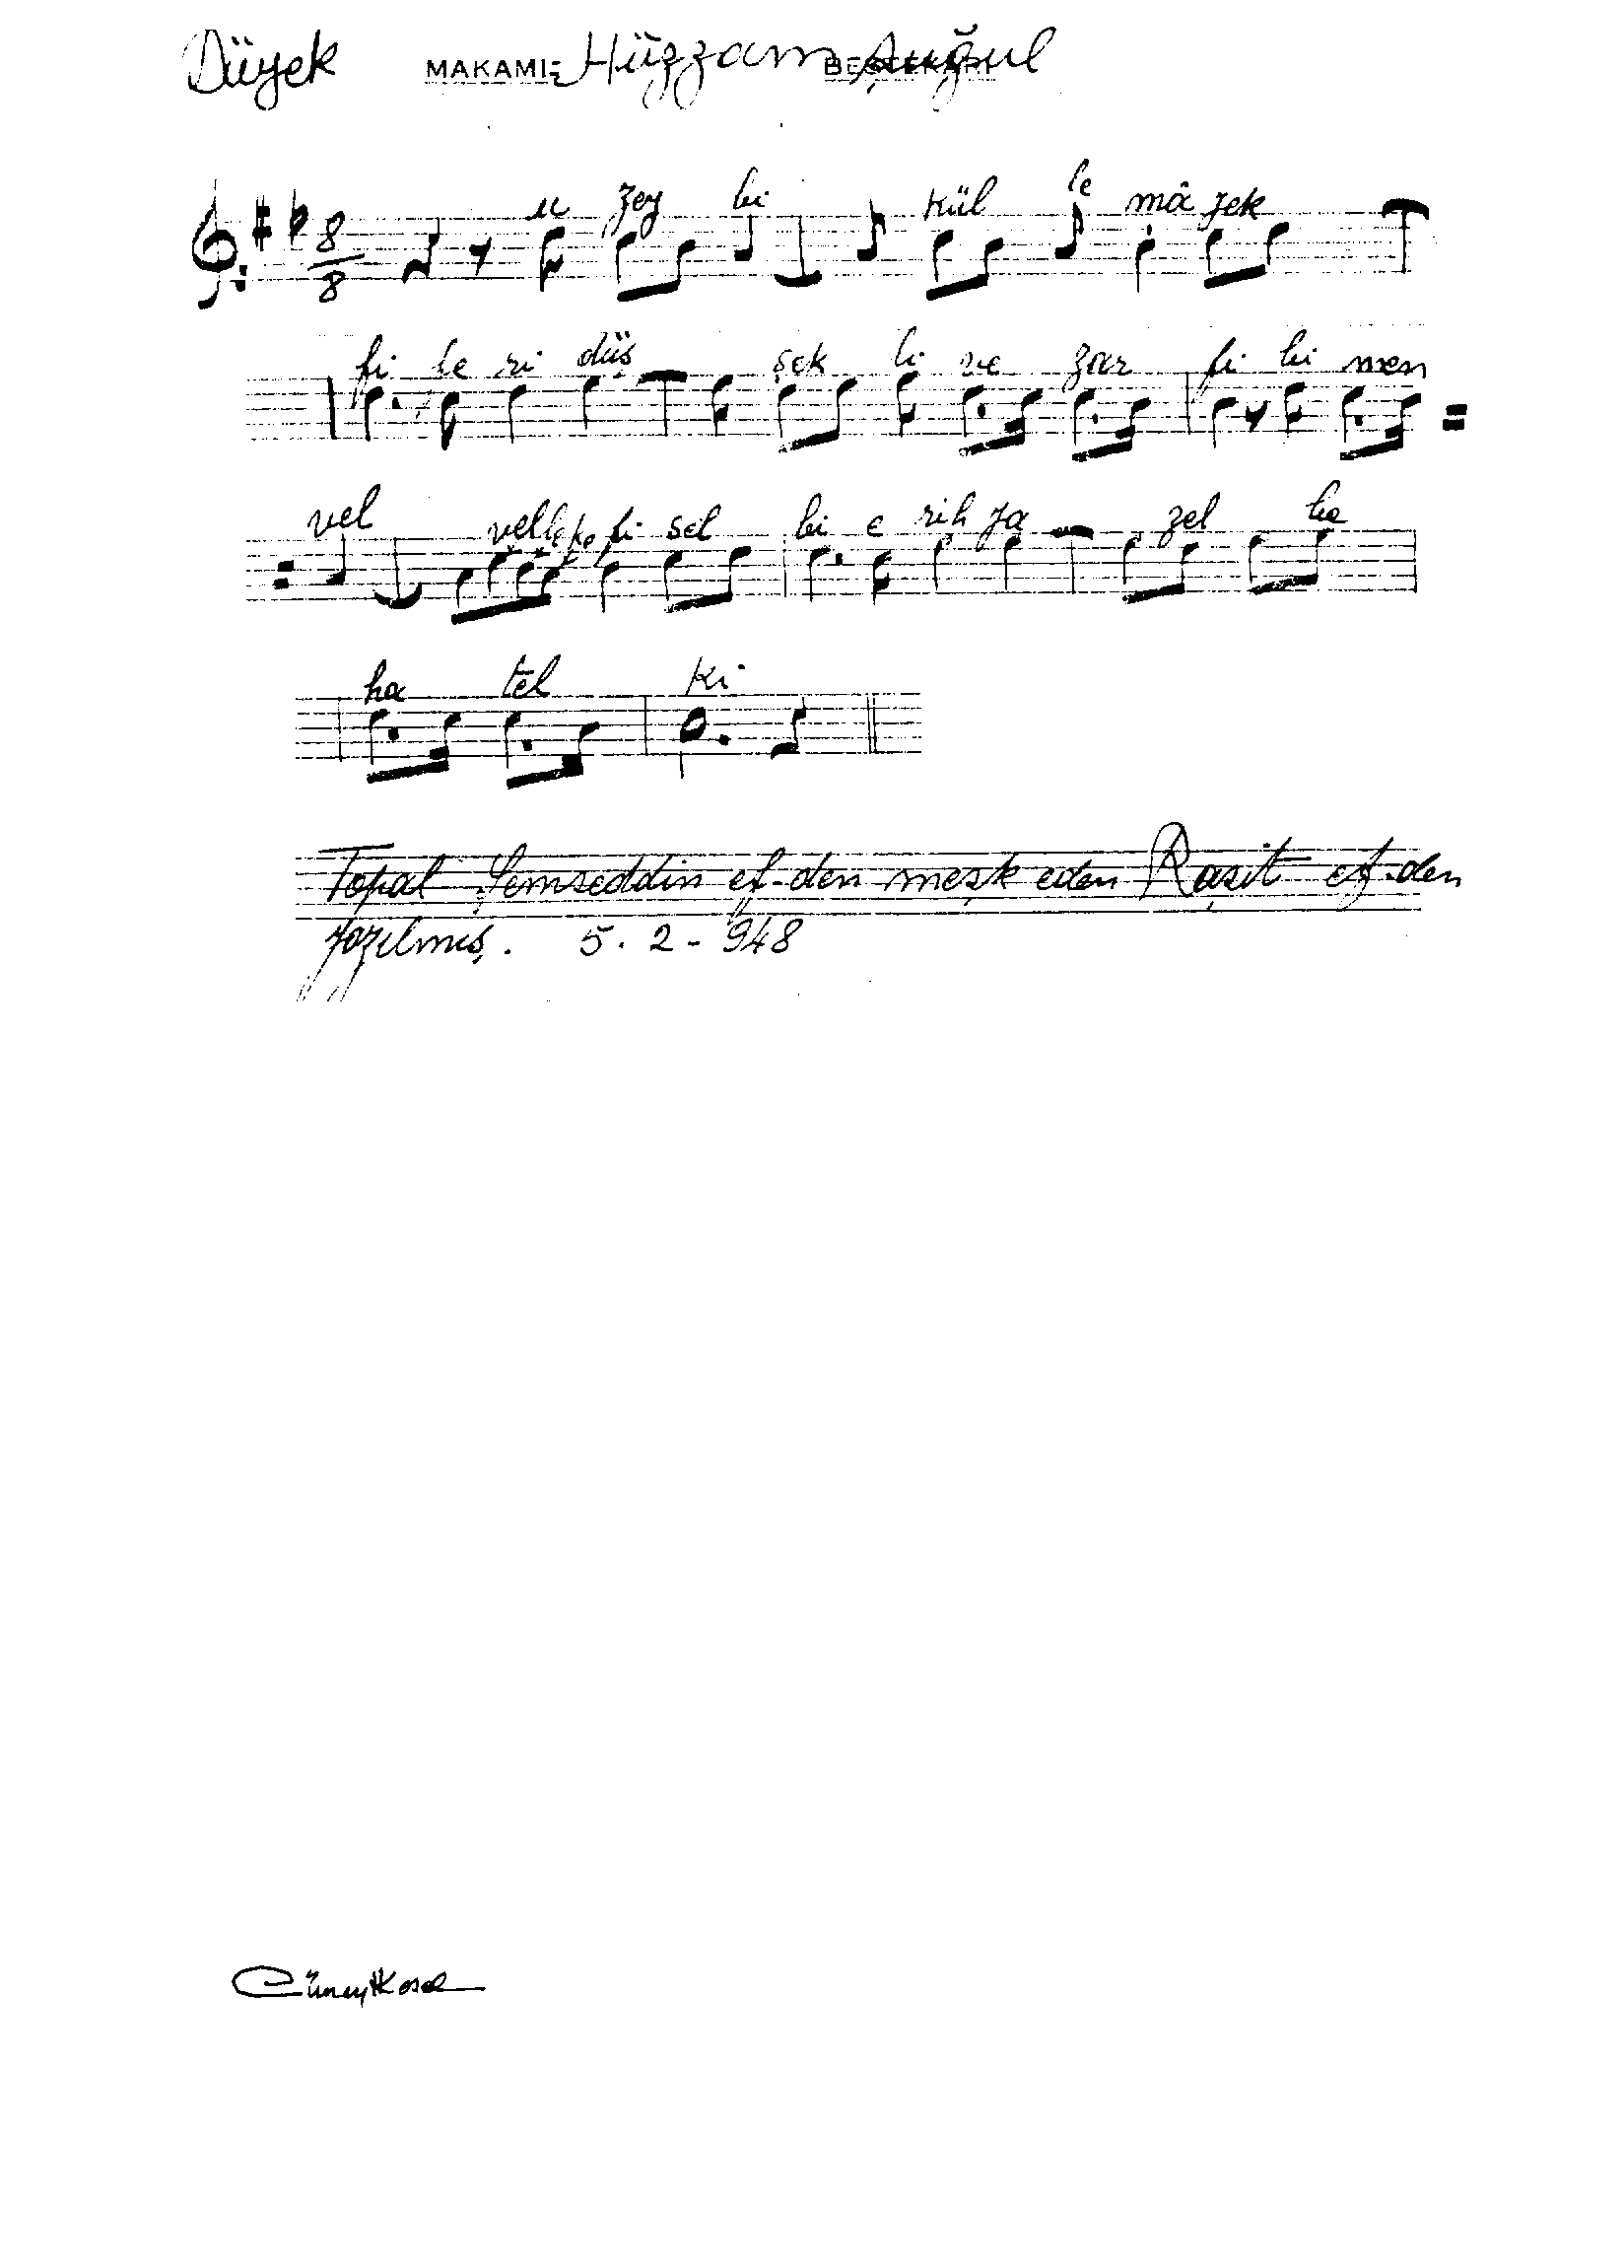 Düyek MAKAMI: Hüzzam Şuğul
8/8 u zey bi kül le mâ yek
fi be ri düş şek li ve zar fi bi men
vel vel fi sel bi e rih ya zel ha
ha tel ki
Topal Şemseddin ef-den meşk eden Raşit ef-den
yazılmış. 5.2-948
Cüneyt Kosal